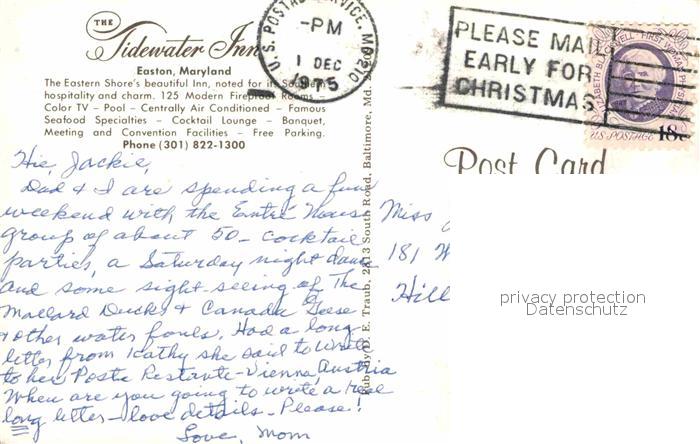 THE
Tidewater Inn
Easton, Maryland
The Eastern Shore's beautiful Inn, noted for its Southern
hospitality and charm. 125 Modern Fireproof Rooms –
Color TV – Pool – Centrally Air Conditioned – Famous
Seafood Specialties – Cocktail Lounge – Banquet,
Meeting and Convention Facilities – Free Parking.
Phone (301) 822-1300
U.S. POSTAL SERVICE, MD 210
-PM
1 DEC
1975
PLEASE MAIL
EARLY FOR
CHRISTMAS
ELIZABETH BLACKWELL - FIRST WOMAN PHYSICIAN
US POSTAGE 18c
Post Card
Hie, Jackie,
Dad & I are spending a fun
weekend with the Entre Nous
group of about 50 - cocktail
parties, a Saturday night dance
and some sight seeing of The
Mallard Ducks & Canada Geese
& other water fouls. Had a long
letter from Kathy she said to write
to her Poste Restante - Vienna, Austria
When are you going to write a real
long letter - love details - Please!
Love, Mom
Pub. by D. E. Traub, 2813 South Road, Baltimore, Md.
Miss
181 W
Hill
privacy protection
Datenschutz